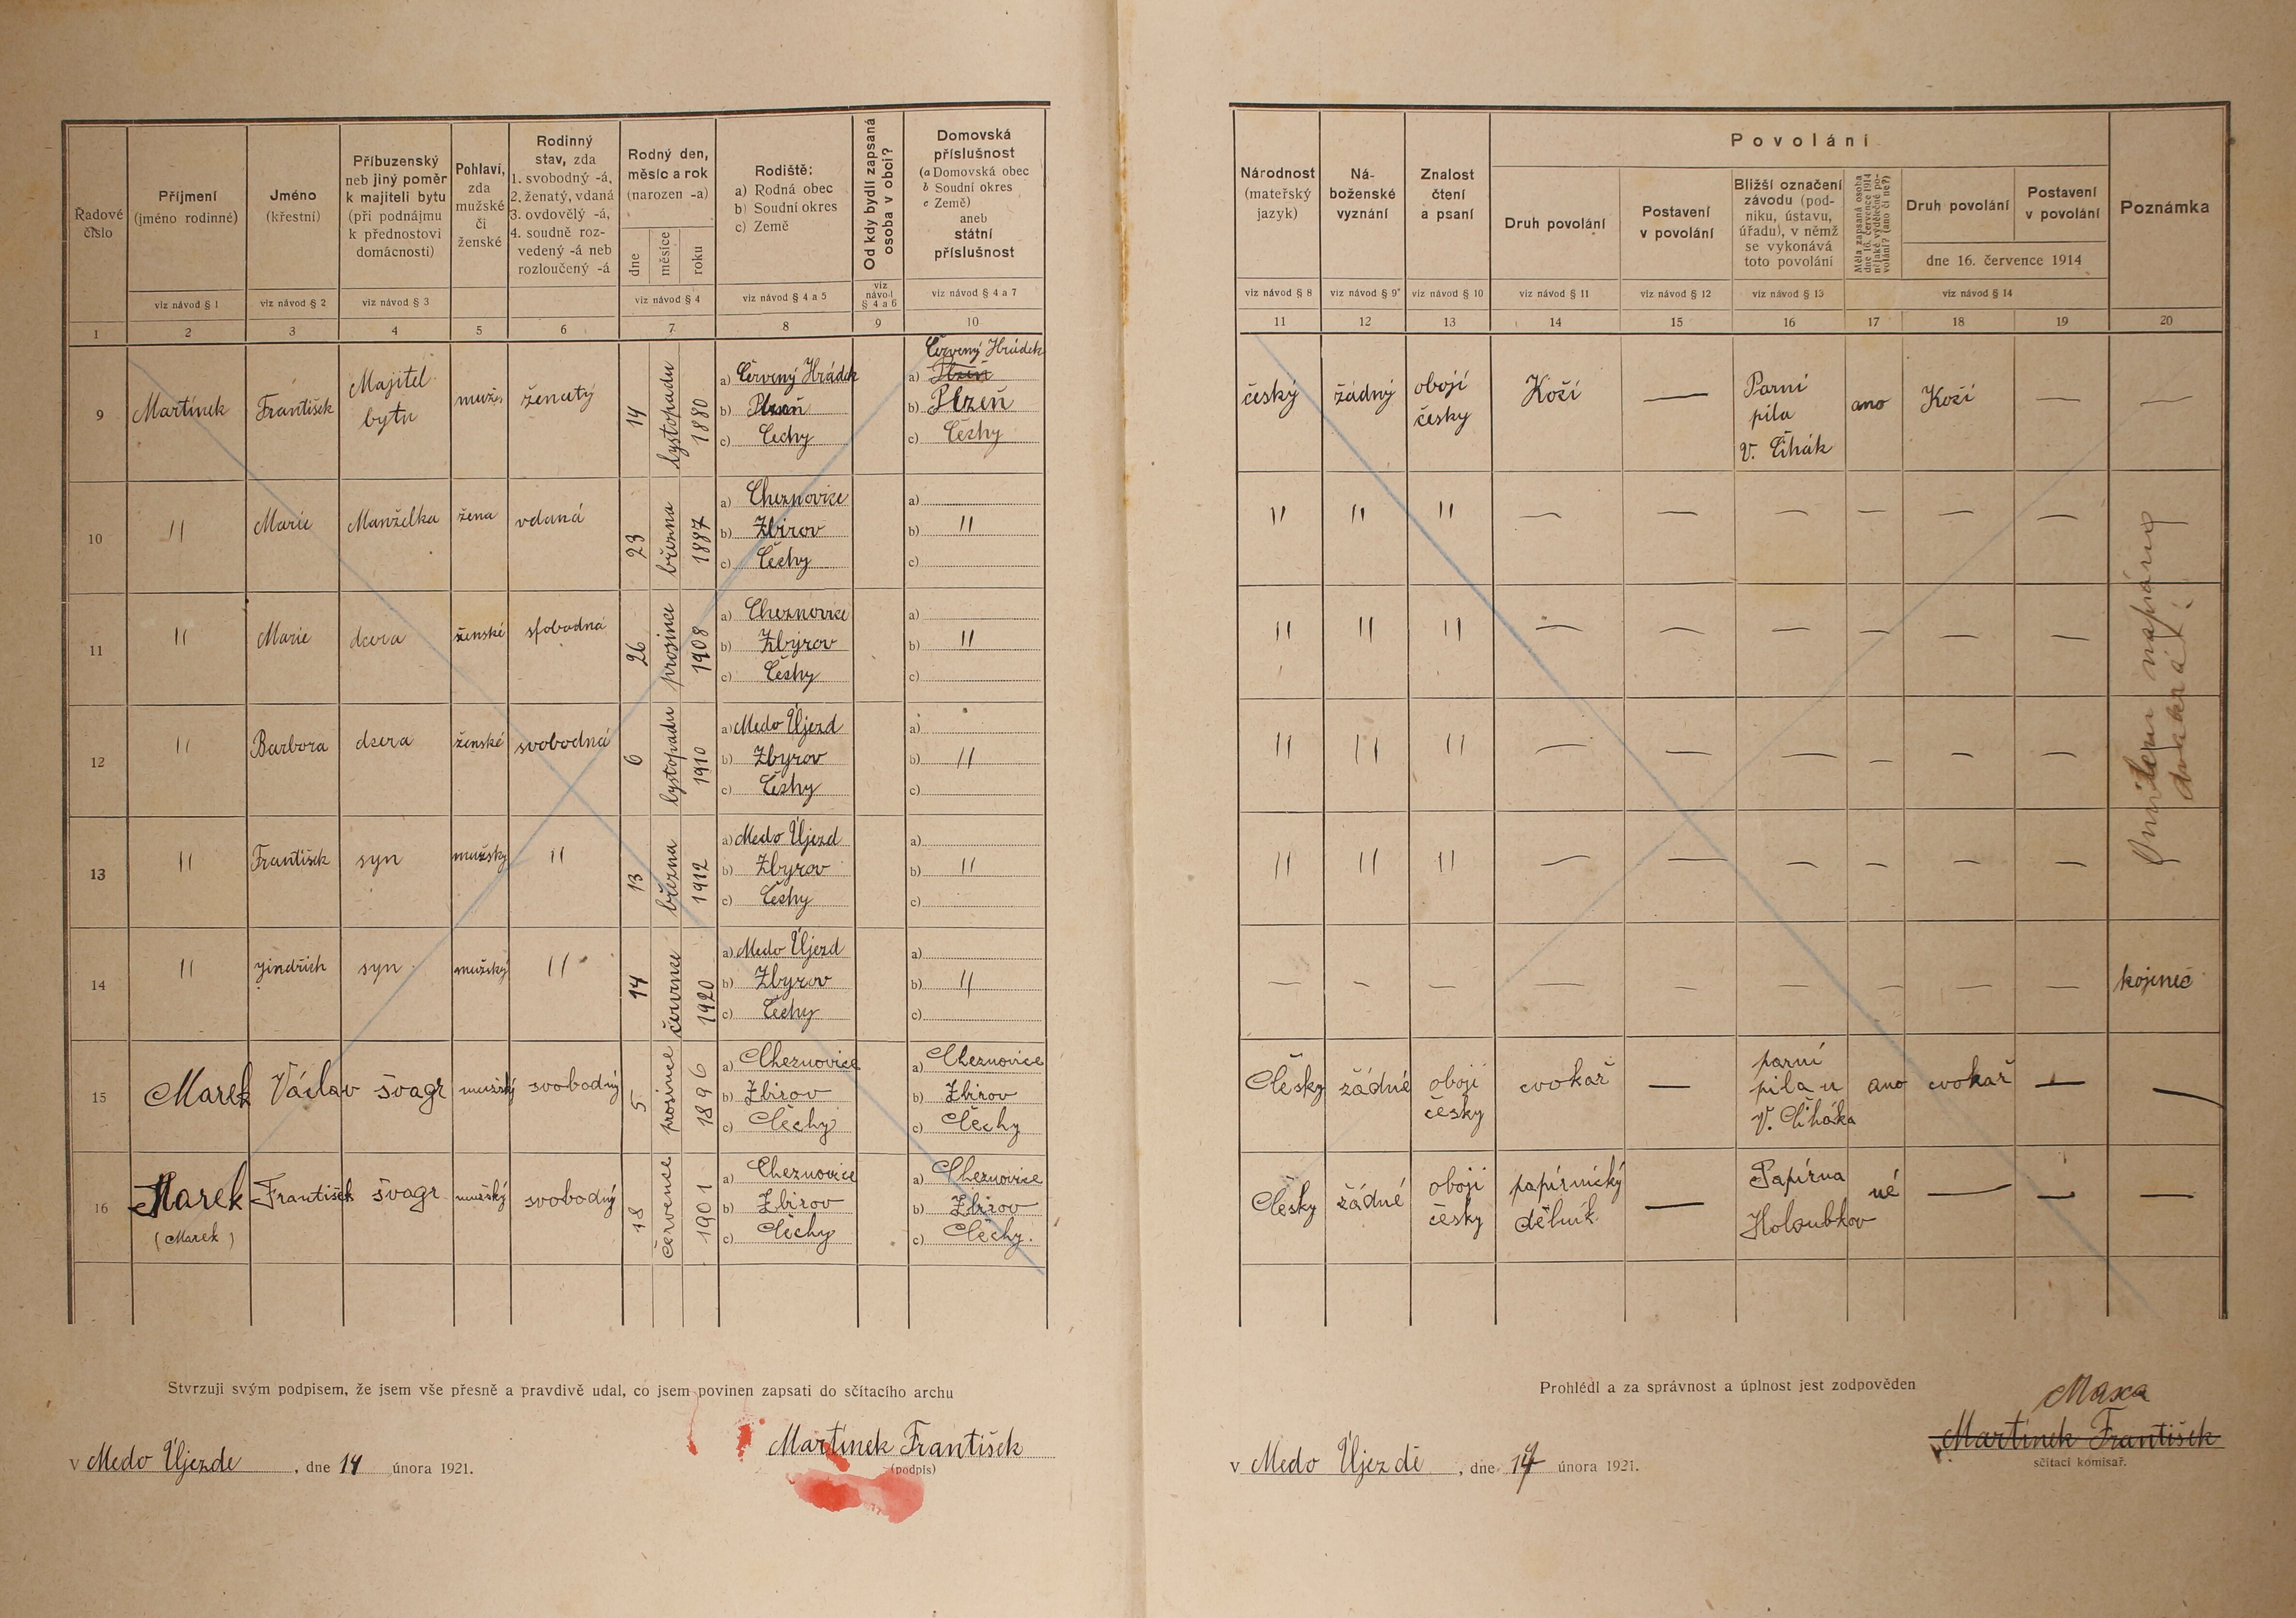 Řadové číslo
Příjmení (jméno rodinné)
Jméno (křestní)
Příbuzenský neb jiný poměr k majiteli bytu (při podnájmu k přednostovi domácnosti)
Pohlaví, zda mužské či ženské
Rodinný stav, zda 1. svobodný -á, 2. ženatý, vdaná 3. ovdovělý -á, 4. soudně rozvedený -á neb rozloučený -á
Rodný den, měsíc a rok (narozen -a)
dne měsíce roku
Rodiště: a) Rodná obec b) Soudní okres c) Země
Od kdy bydlí zapsaná osoba v obci?
Domovská příslušnost (a Domovská obec b Soudní okres c Země) aneb státní příslušnost
viz návod § 1 viz návod § 2 viz návod § 3 viz návod § 4 viz návod § 4 a 5 viz návod § 4 a 6 viz návod § 4 a 7
1 2 3 4 5 6 7 8 9 10
9 Martínek František Majitel bytu muž. ženatý 14 lystopadu 1880 a) Červený Hrádek b) Plzeň c) Čechy Červený Hrádek a) Plzeň b) Plzeň c) Čechy
10 " Marie Manželka žena vdaná 23 března 1887 a) Cheznovice b) Zbirov c) Čechy a) b) " c)
11 " Marie dcera ženské sfobodná 26 prosince 1908 a) Cheznovice b) Zbyrov c) Čechy a) b) " c)
12 " Barbora dcera ženské svobodná 6 lystopadu 1910 a) Medo Újezd b) Zbyrov c) Čechy a) b) " c)
13 " František syn mužský " 13 března 1912 a) Medo Újezd b) Zbyrov c) Čechy a) b) " c)
14 " Jindřich syn mužský " 14 července 1920 a) Medo Újezd b) Zbyrov c) Čechy a) b) " c)
15 Marek Václav švagr mužský svobodný 5 prosince 1896 a) Cheznovice b) Zbirov c) Čechy a) Cheznovice b) Zbirov c) Čechy
16 Marek (Marek) František švagr mužský svobodný 18 července 1901 a) Cheznovice b) Zbirov c) Čechy a) Cheznovice b) Zbirov c) Čechy.
Stvrzuji svým podpisem, že jsem vše přesně a pravdivě udal, co jsem povinen zapsati do sčítacího archu
v Medo Újezde, dne 14 února 1921.
Martínek František
(podpis)
Národnost (mateřský jazyk)
Náboženské vyznání
Znalost čtení a psaní
Povolání
Druh povolání
Postavení v povolání
Bližší označení závodu (podniku, ústavu, úřadu), v němž se vykonává toto povolání
Měla zapsaná osoba dne 16. července 1914 nějaké výdělečné povolání? (ano či ne?)
Druh povolání
Postavení v povolání
dne 16. července 1914
Poznámka
viz návod § 8 viz návod § 9 viz návod § 10 viz návod § 11 viz návod § 12 viz návod § 13 viz návod § 14
11 12 13 14 15 16 17 18 19 20
český žádný obojí česky Kočí — Parní pila V. Čihák ano Kočí — —
" " " — — — — — —
" " " — — — — — —
" " " — — — — — —
" " " — — — — — —
— — — — — — — — — kojenec
Česky žádné obojí česky cvokař — parní pila u V. Čiháka ano cvokař — —
Česky žádné obojí česky papírnický dělník — Papírna Holoubkov né — — —
Prohlédl a za správnost a úplnost jest zodpověden
Maxa
v Medo Újezdě, dne 14 února 1921.
Martínek František
sčítací komisař.